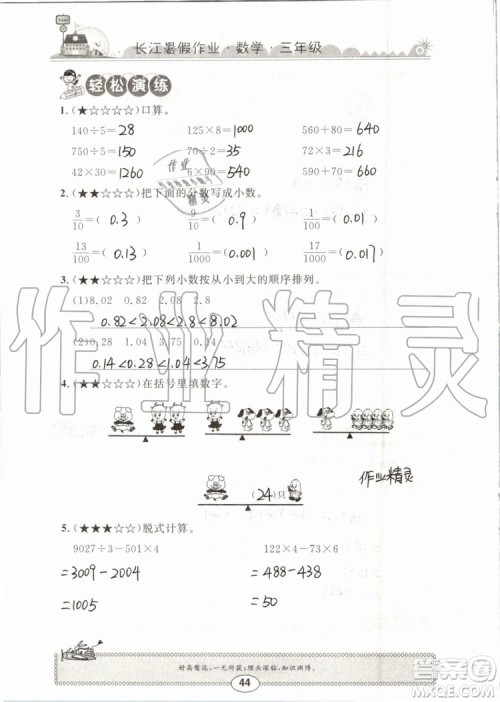 长江暑假作业·数学·三年级
轻松演练
1.(★☆☆☆☆)口算。
140÷5=28 125×8=1000 560+80=640
750÷5=150 70÷2=35 72×3=216
42×30=1260 6×90=540 3
2.(★★☆☆☆)把下面的分数写成小数。
3/10=( 0.3 ) 9/10=( 0.9 ) 1/100=( 0.01 )
13/100=( 0.13 ) 1/1000=( 0.001 ) 17/1000=( 0.017 )
3.(★★☆☆☆)把下列小数按从小到大的顺序排列。
(1)8.02 0.82 2.08 2.8
0.82<2.08<2.8<8.02
(2)0.28 1.04 3.75 0.14
0.14<0.28<1.04<3.75
4.(★★★☆☆)在括号里填数字。
(24)只
作业精灵
5.(★★★☆☆)脱式计算。
9027÷3-501×4 122×4-73×6
=3009-2004 =488-438
=1005 =50
好高骛远,一无所获;埋头深钻,知识渊博。
44
作业精灵
作业
精灵
答案圈
MXQE.COM